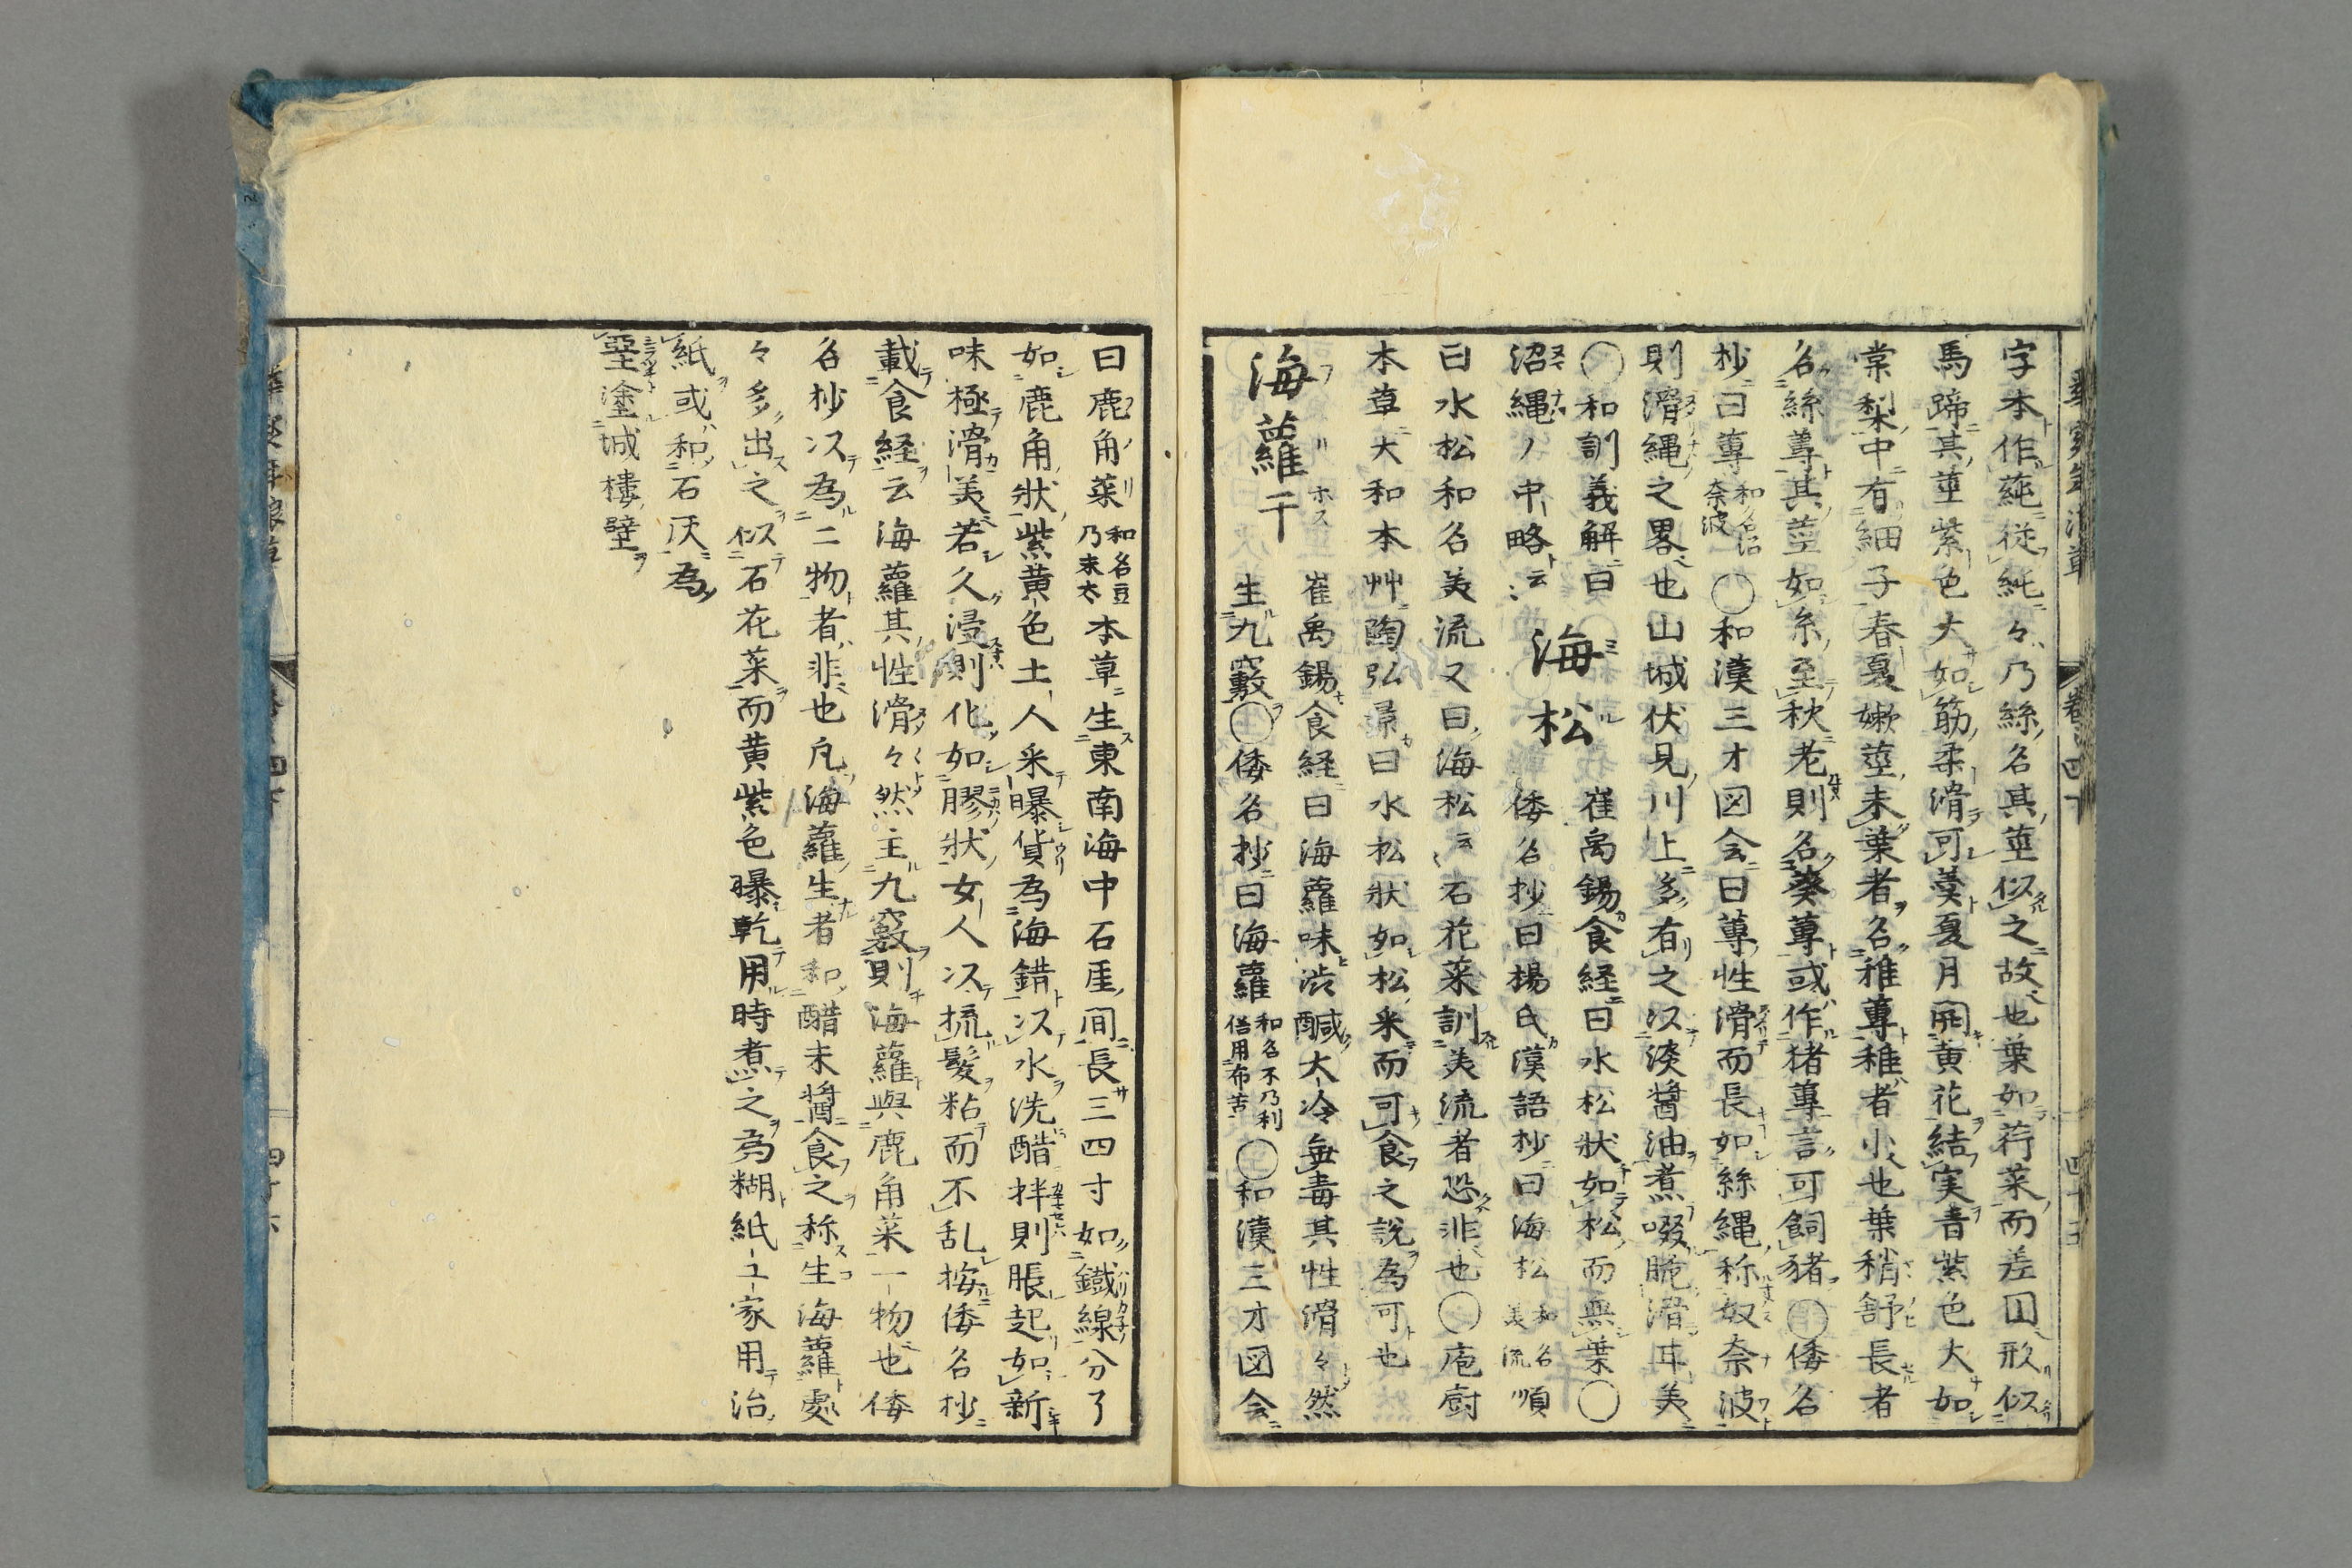 字本作蓴従純々乃絲名其莖似之故也葉如荇菜而差囙形似
馬蹄其莖紫色大如筋柔滑可羹夏月開黄花結実青紫色大如
棠梨中有細子春夏嫩莖未葉者名稚蓴稚者小也葉稍舒長者
名絲蓴其莖如糸至秋老則名葵蓴或作猪蓴言可飼猪〇倭名
抄曰蓴和名沼奈波〇和漢三才図会曰蓴性滑而長如絲縄称奴奈波
則滑縄之畧也山城伏見川上多有之以淡醤油煮啜脆滑耳美
〇和訓義解曰
沼縄ノ中略ト云
海松 崔禹錫食経曰水松状如松而無葉〇
倭名抄曰楊氏漢語抄曰海松和名美流順
曰水松和名美流又曰海松云々石花菜訓美流者恐非也〇庖厨
本草大和本艸陶弘景曰水松状如松采而可食之説為可也
海蘿干 崔禹錫食経曰海蘿味渋鹹大冷無毒其性滑々然
生九竅〇倭名抄曰海蘿和名不乃利俗用布苔〇和漢三才図会
曰鹿角菜和名豆乃末太本草生東南海中石厓間長三四寸如鐵線分了
如鹿角状紫黄色土人采曝貨為海錯以水洗醋拌則脹起如新
味極滑美若久浸則化如膠状女人以梳髪粘而不乱按倭名抄
載食経云海蘿其性滑々然主九竅則海蘿與鹿角菜一物也倭
名抄以為二物者非也凡海蘿生者和醋未醤食之称生海蘿處
々多出之似石花菜而黄紫色曝乾用時煮之為糊紙工家用治
紙或和石灰為
堊塗城樓壁